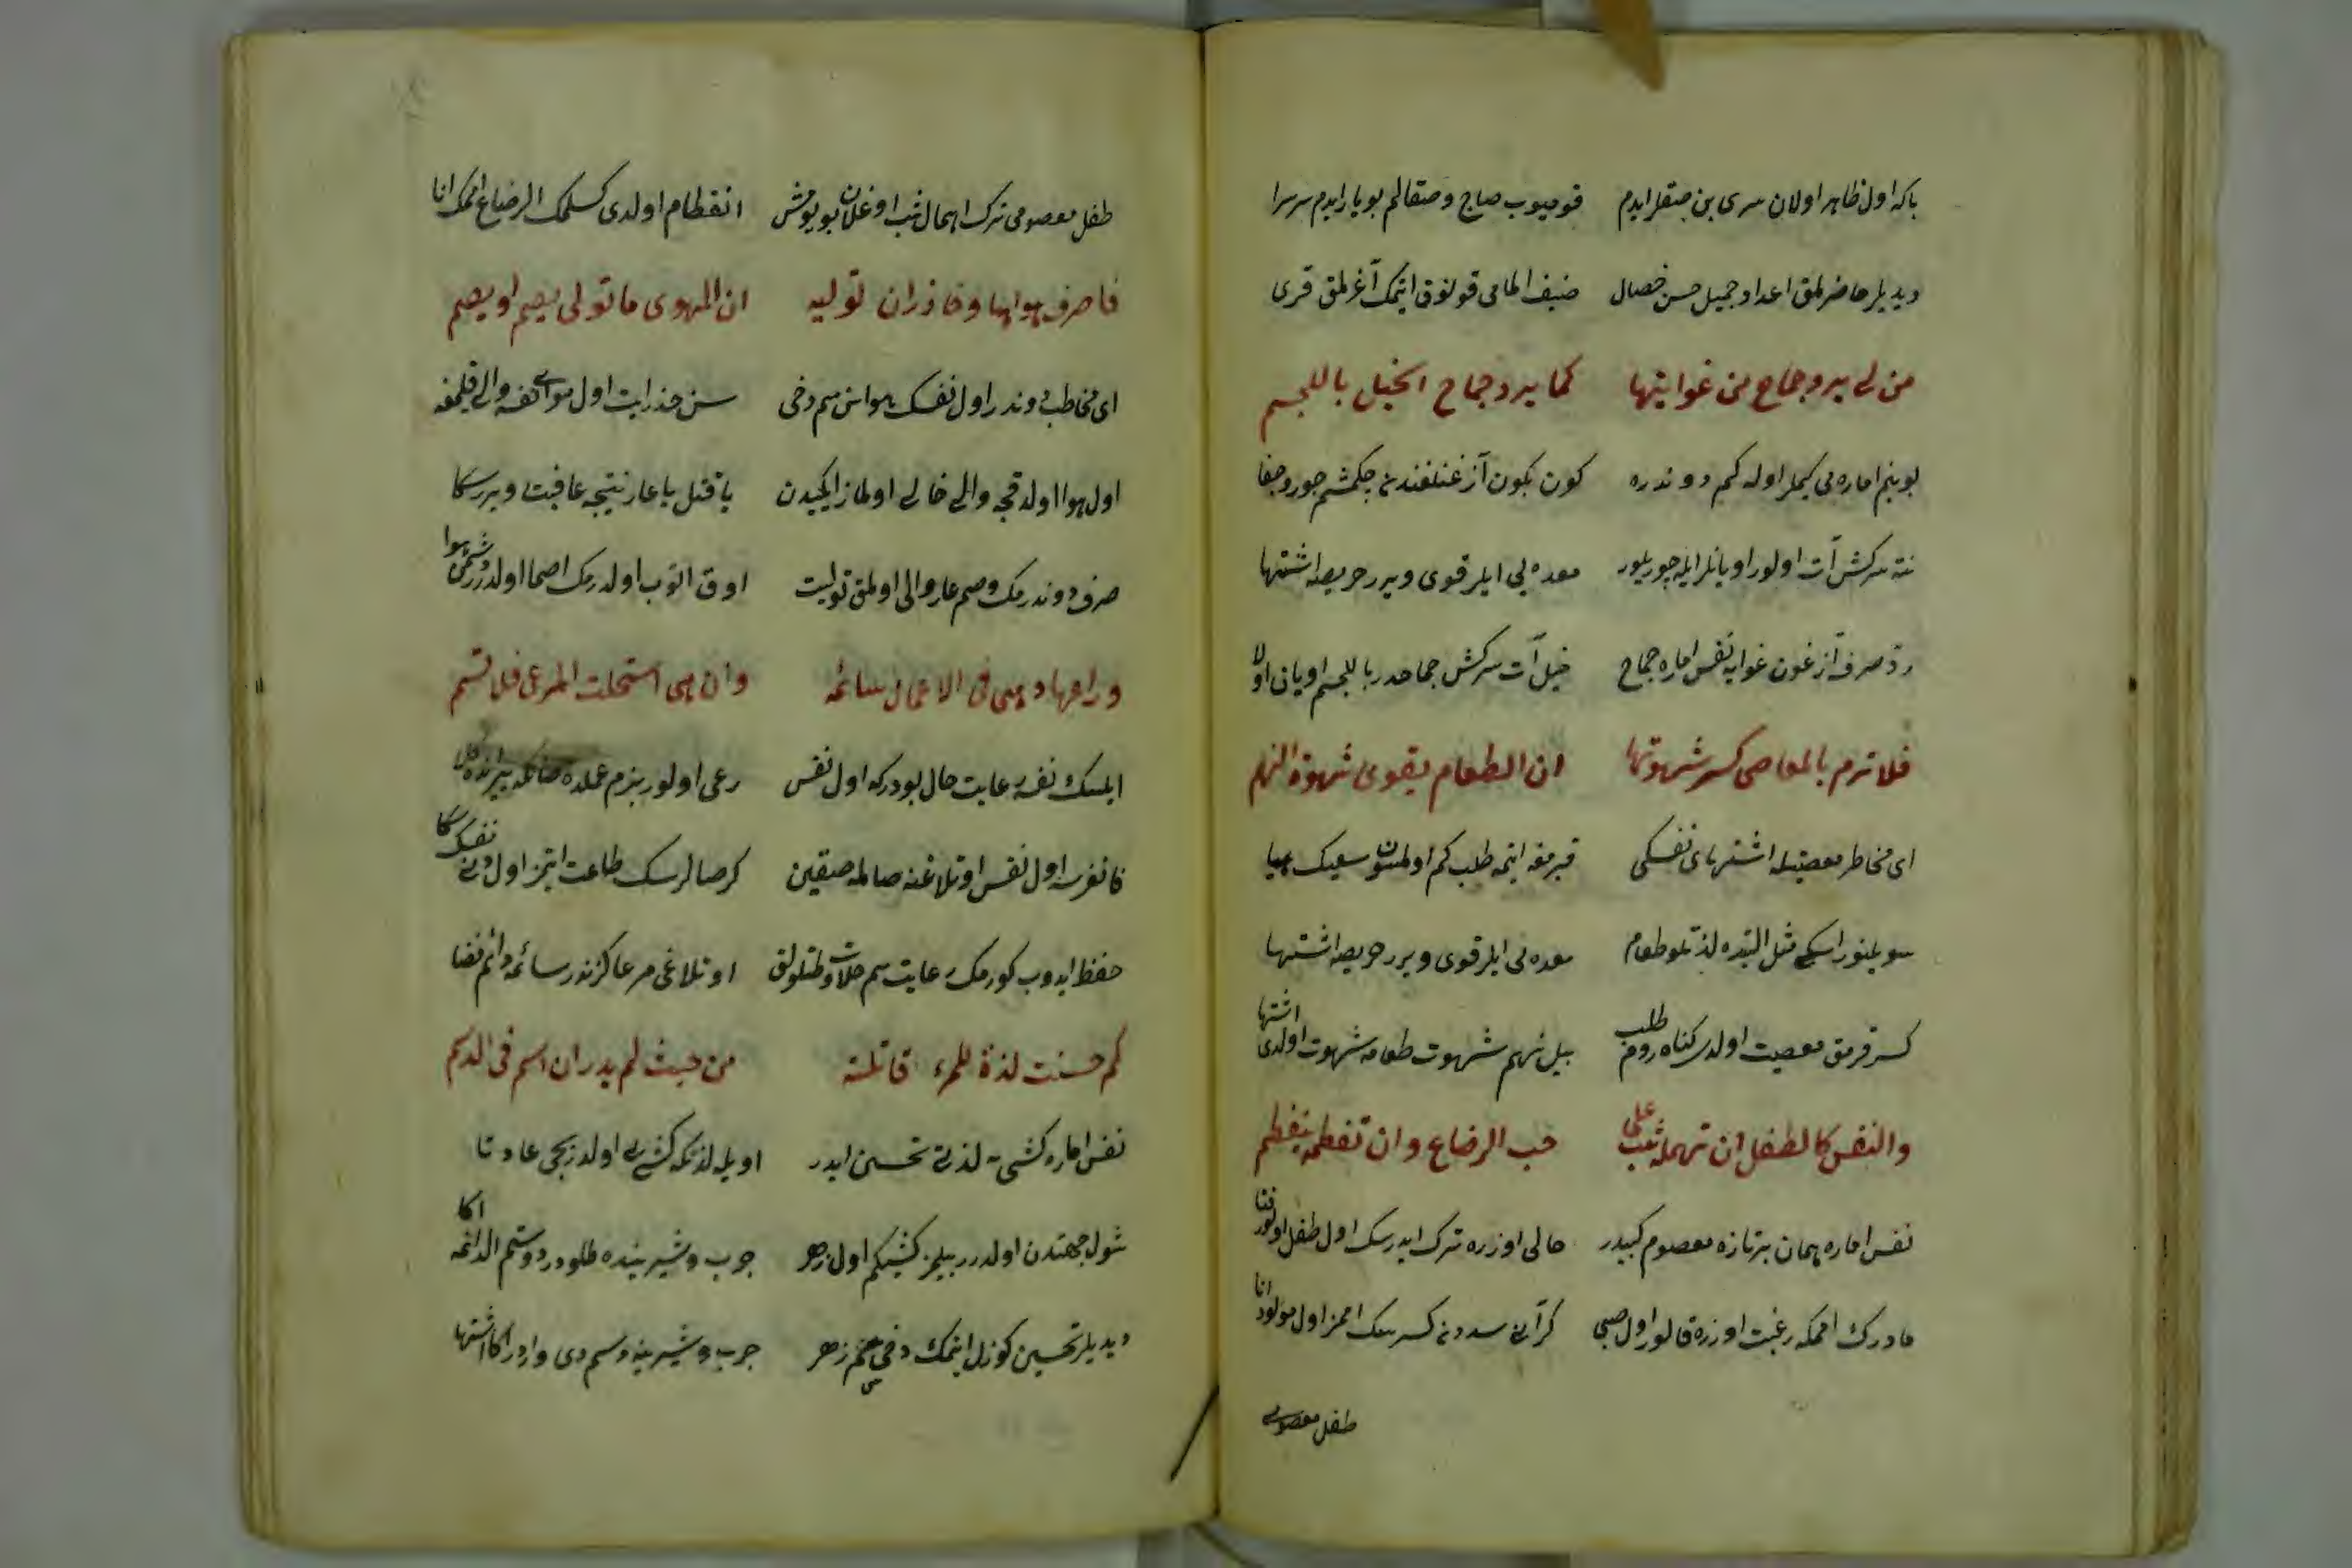 باكه اول ظاهر اولان سرى بن صقلر ايدم قوميوب صاج و صقالم بويار ايدم سرسرا
ديديلر حاضرلمق اعداد جميل حسن خصال ضيف المامى قونوق ايتمك آغرلمق قرى
من لى برد جماح من غوايتها كما يرد جماح الخيل باللجم
بو بنم اماره مى كيملر اوله كم دوندره كون بكون آزغنلغندن چكمشم جور و جفا
نته سركش آت اولور اويانلر ايله چوريلور معده يى ايلر قوى ويرر حريصه اشتها
رد صرف آزغون غوايه نفس اماره جماح خيل آت سركش جماحدر باللجم اويان اولا
فلا ترم بالمعاصى كسر شهوتها ان الطعام يقوى شهوة النهم
اى مخاطر معصيتله اشتهاى نفسكى قيرمغه ايتمه طلب كم اولمسون سعيك هبا
سويلنور اسكى مثل البته ده لذتلو طعام معده يى ايلر قوى ويرر حريصه اشتها
كسر قرمق معصيت اولدى كناه روم طلب بيل نهم شهوت طعامه شهوت اولدى اشتها
والنفس كالطفل ان تهمله شب على حب الرضاع وان تفطمه ينفطم
نفس اماره همان بر تازه معصوم كبيدر حالى اوزره ترك ايدرسك اول طفل اولور فتا
مادرك امكه رغبت اوزره قالور اول صبى كر آنى سددن كسرسك اممز اول مولود انا
طفل معصومى
طفل معصومى ترك اهمال شب اوغلان بويومش انفطام اولدى كسلمك الرضاع امك انا
فاصرف هواها و حاذر ان توليه ان الهوى ما تولى يصم او يصم
اى مخاطب دوندر اول نفسك هواسن هم دخى سن حذر ايت اول هواى نفسه والى قيلمغه
اول هوا اولدقچه والى خالى اولماز ايكيدن يا قتل يا عار نتيجه عاقبت ويرر سكا
صرف دوندرمك وصم عار والى اولمق توليت اوق اتوب اولدرمك اصما اولدى دشمن هوا
وراعها وهى فى الاعمال سائمه وان هى استحلت المرعى فلا تسم
ايلسك نفسه رعايت حال بودركه اول نفس رعى اولور بزم عملده
قانغرسه اول نفس اوتلاغنه صالمه صقين كر صالرسك طاعت ايتمز اول دنى نفسك سكا
حفظ ايدوب كورمك رعايت هم حلاوت طتلولق اوتلاغى مرعا كزندر سائمه دائم فضا
كم حسنت لذة للمرء قاتلة من حيث لم يدر ان السم فى الدسم
نفس اماره كشى يه لذتى تحسين ايدر اويله لذتكه كشى يى اولدريجى عادتا
شول جهتدن اولدرر بيلمز كشيكم اول زهر چرب و شيرينده طلودر دوستم الدانمه اكا
ديديلر تحسين كوزل ايتمك دخى سم زهر چرب و شيرينه دسم دى واردر اكا اشتها